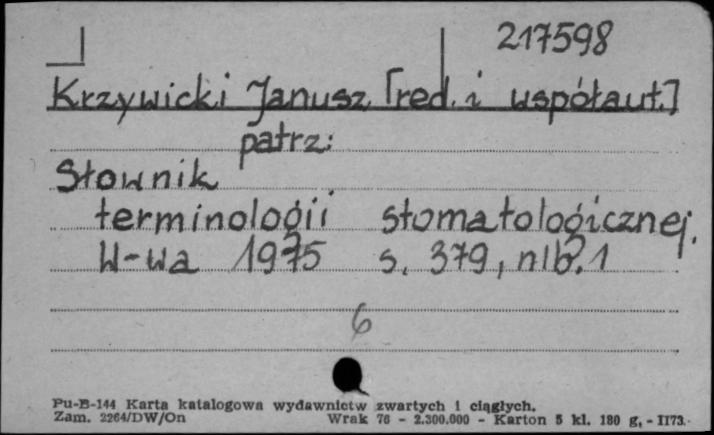 217598
Krzywicki Janusz [red. i współaut.]
patrz:
Słownik
terminologii stomatologicznej.
W-wa 1975 s. 379, nlb. 1
6
Pu-B-144 Karta katalogowa wydawnictw zwartych i ciągłych.
Zam. 2264/DW/On Wrak 76 - 2.300.000 - Karton 5 kl. 180 g, - II73.